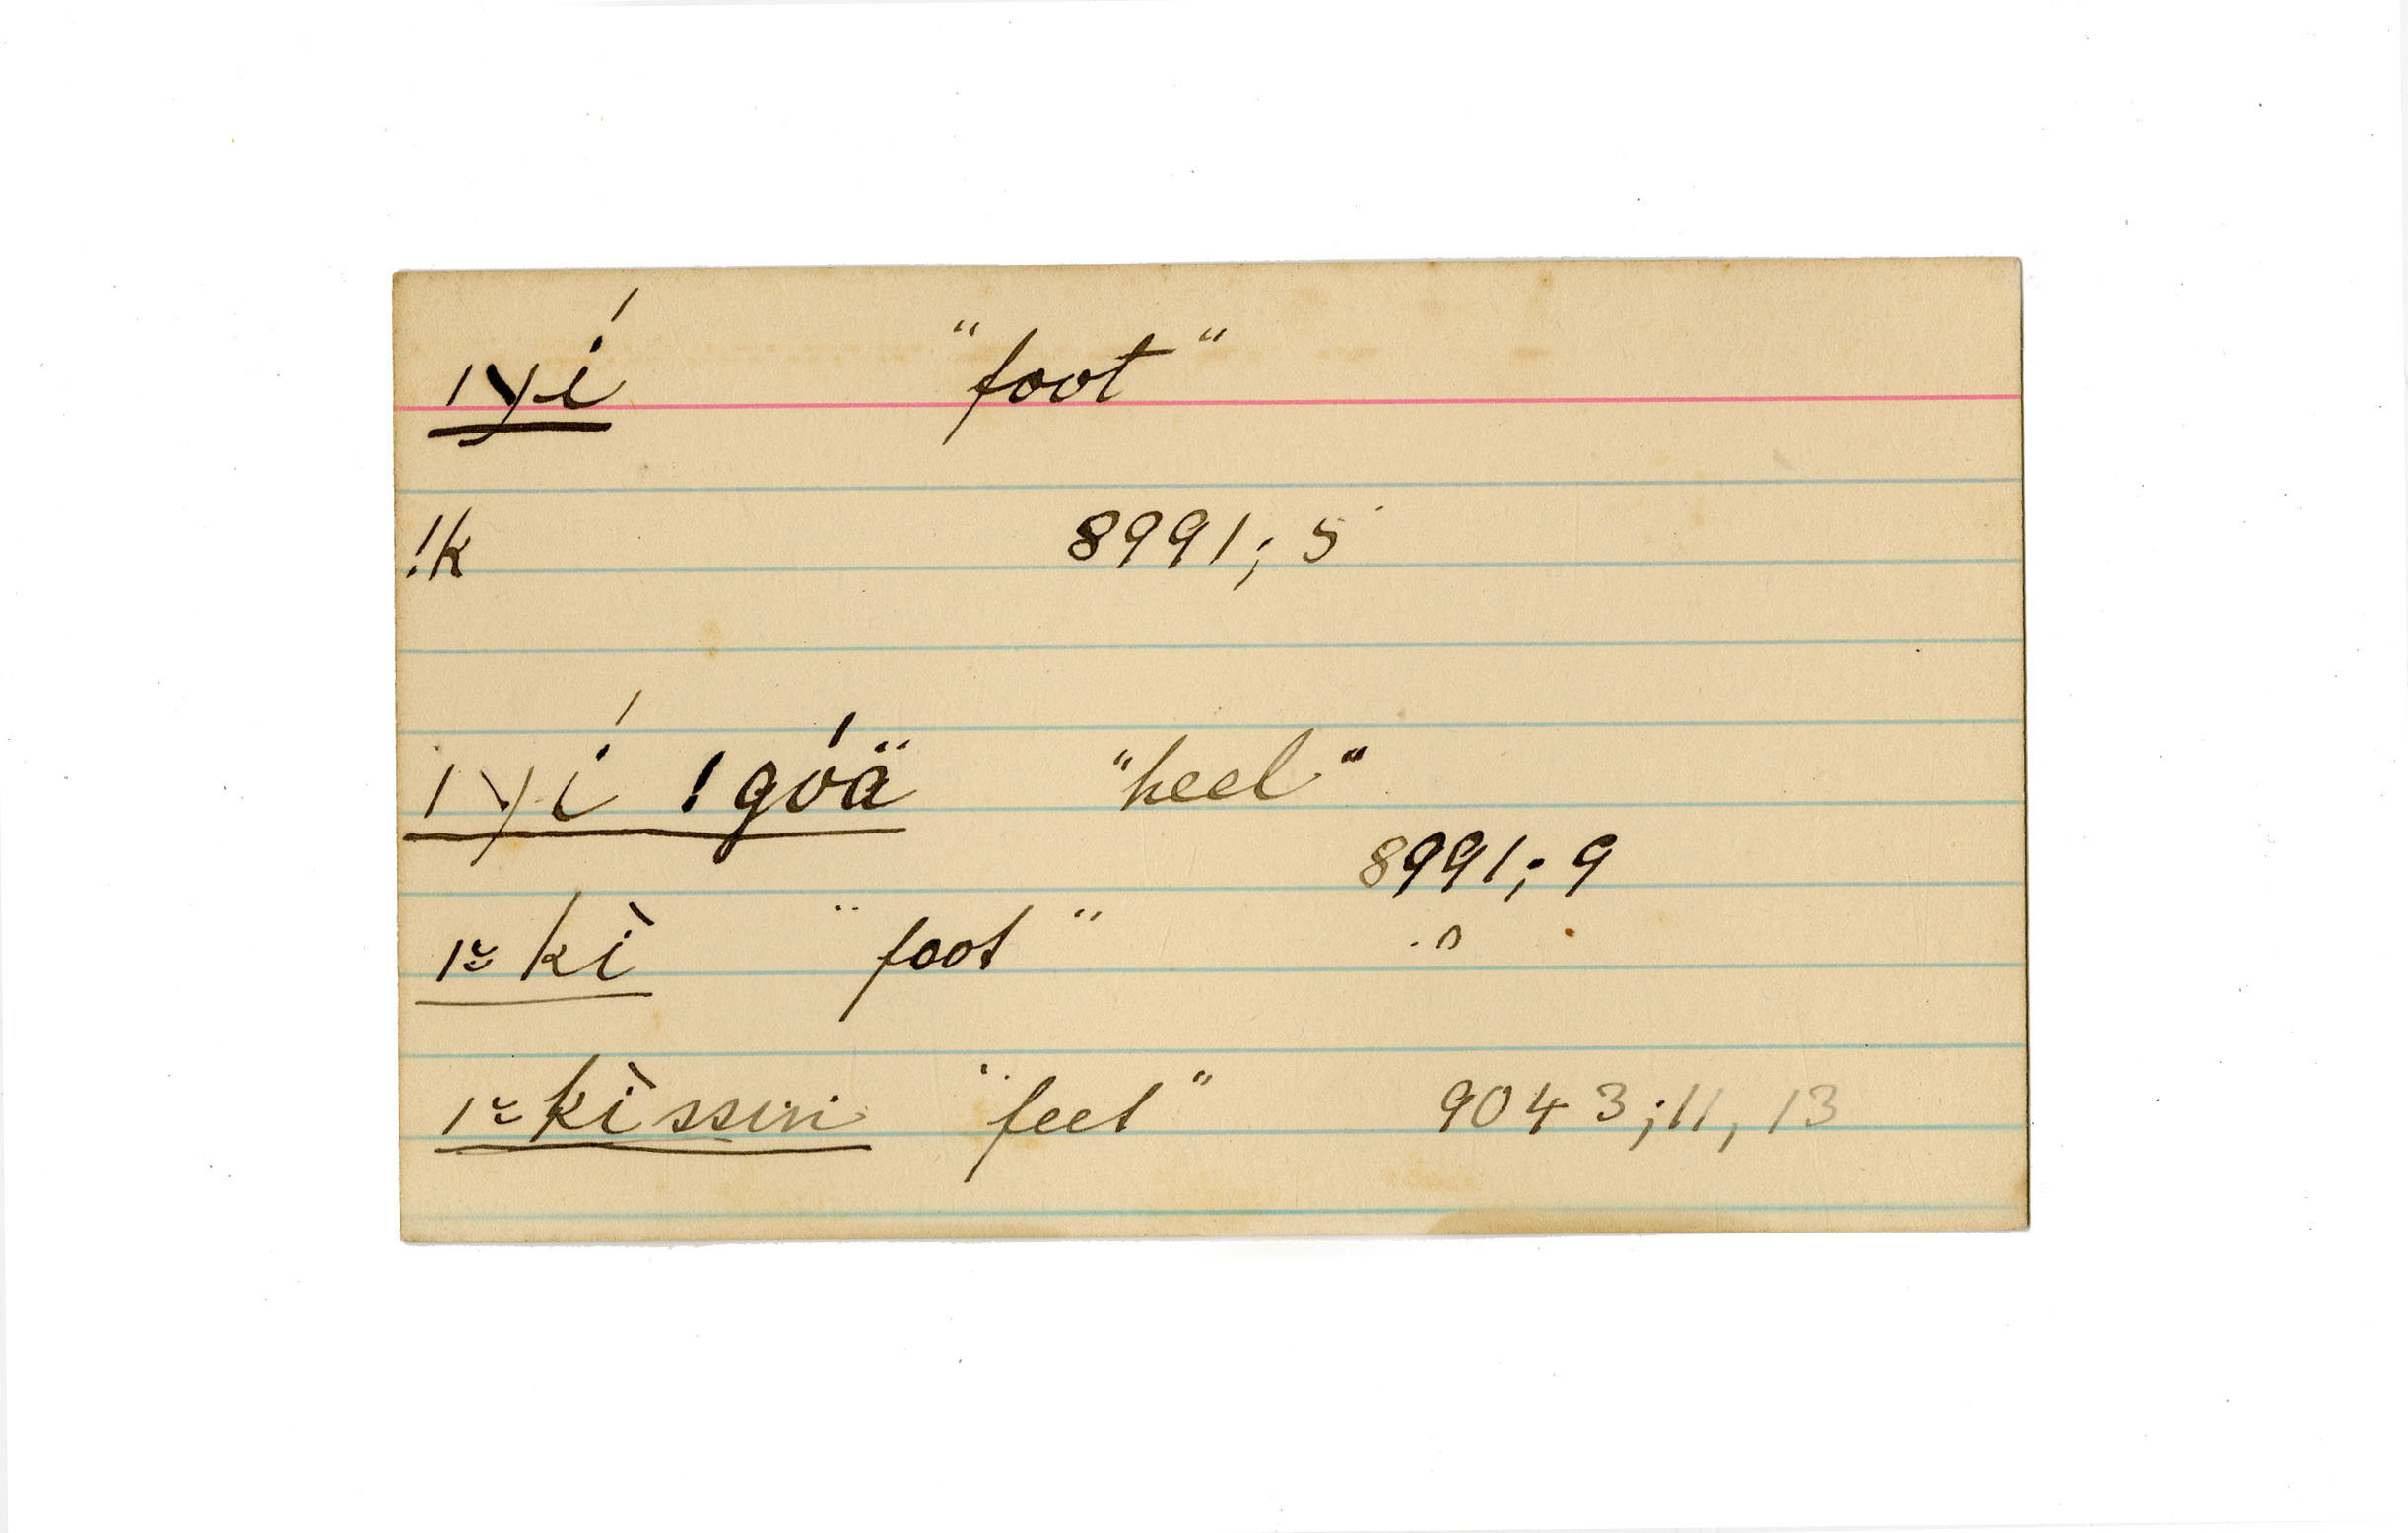 ǀyí "foot"
!k 8991; 5
ǀyí !góä "heel"
8991; 9
ǀ˘̰ kì "foot" "
ǀ˘̰ kìssin "feet" 9043; 11, 13